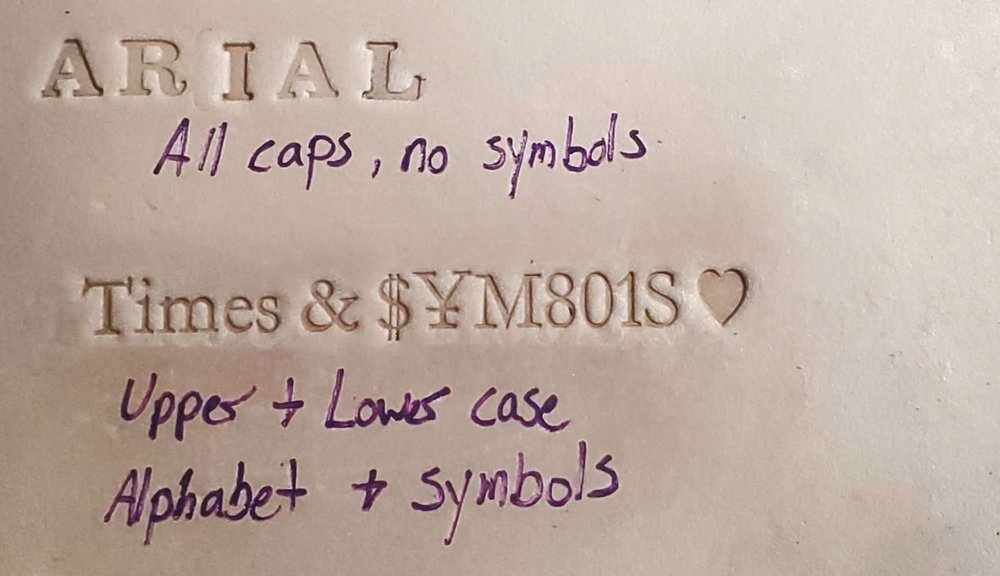 ARIAL
All caps, no symbols
Times & $¥M801S♡
Upper + Lower case
Alphabet + symbols